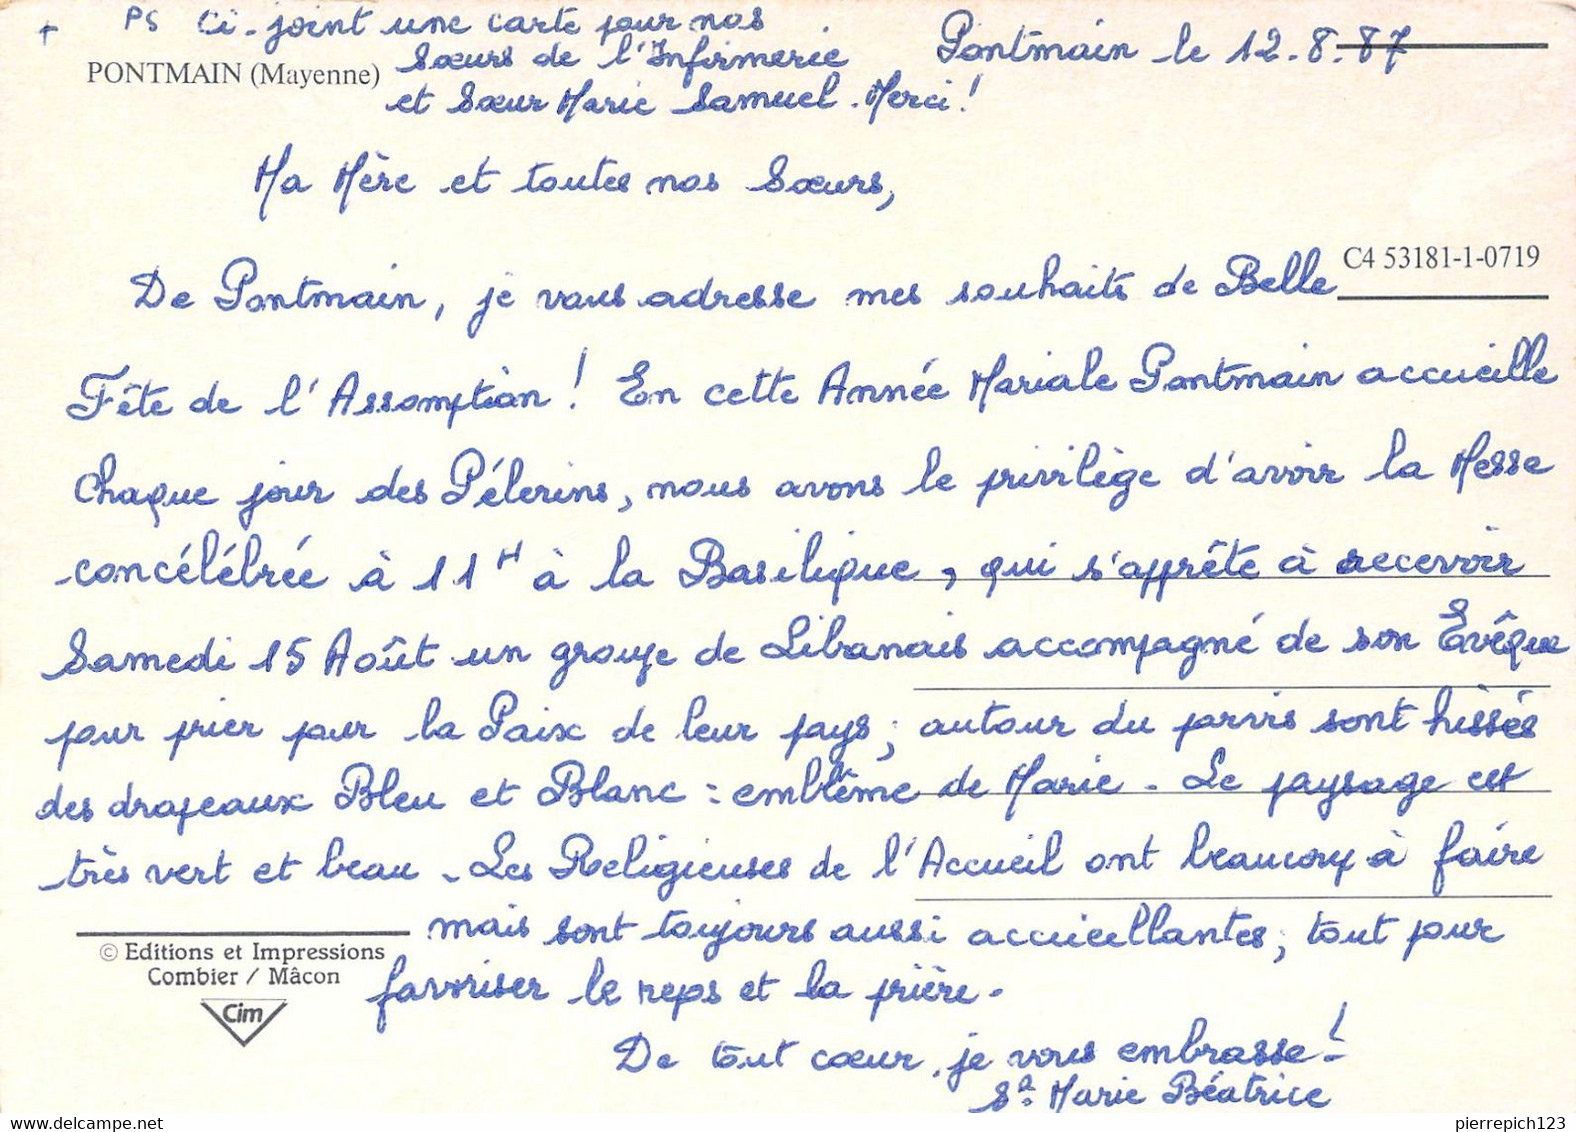 + PS Ci-joint une carte pour nos
Sœurs de l'Infirmerie
et Sœur Marie Samuel. Merci!
PONTMAIN (Mayenne)
Pontmain le 12.8.87
Ma Mère et toutes nos Sœurs,
C4 53181-1-0719
De Pontmain, je vous adresse mes souhaits de Belle
Fête de l'Assomption! En cette Année Mariale Pontmain accueille
chaque jour des Pélerins, nous avons le privilège d'avoir la Messe
concélébrée à 11H à la Basilique, qui s'apprête à recevoir
Samedi 15 Août un groupe de Libanais accompagné de son Evêque
pour prier pour la Paix de leur pays; autour du parvis sont hissés
des drapeaux Bleu et Blanc : emblême de Marie - Le paysage est
très vert et beau - Les Religieuses de l'Accueil ont beaucoup à faire
mais sont toujours aussi accueillantes; tout pour
favoriser le repos et la prière.
De tout cœur, je vous embrasse!
Sr. Marie Béatrice
© Editions et Impressions
Combier / Mâcon
Cim
delcampe.net
pierrepich123